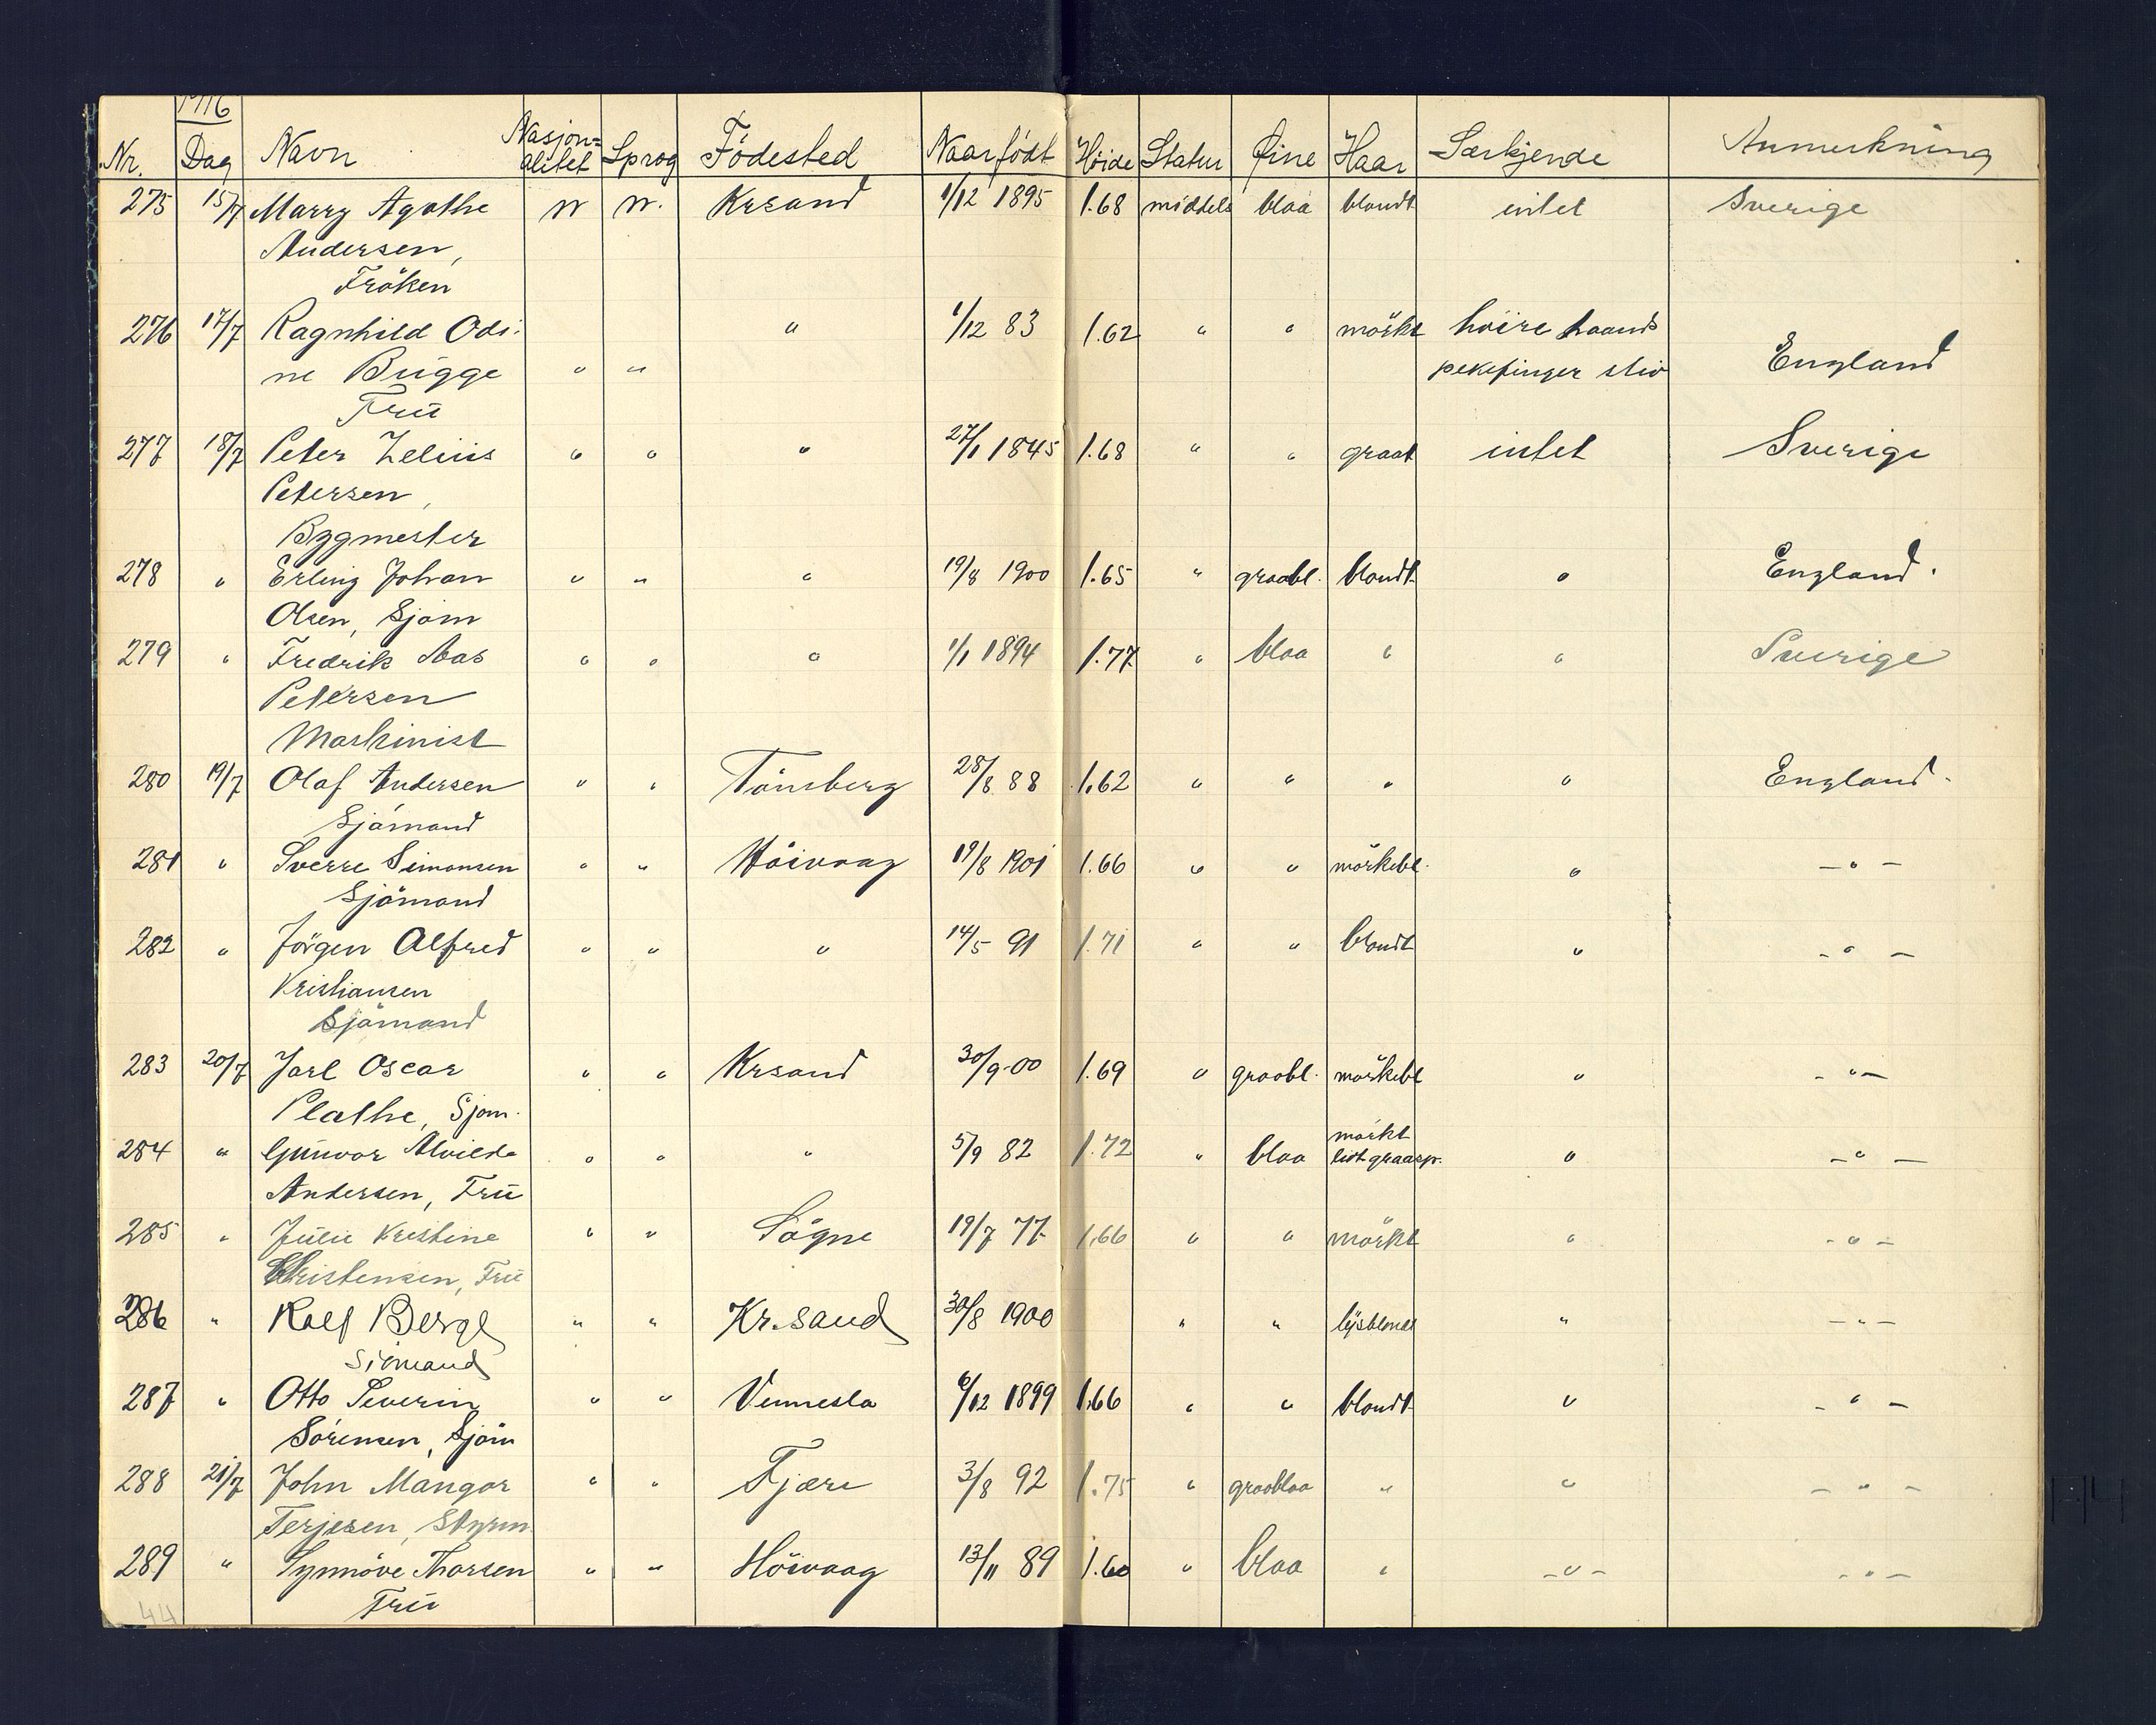 1916
Nr. Dag Navn Nasjon= alitet Sprog Födested Naar födt Höide Statur Öine Haar Særkjende Anmerkning
275 15/7 Marry Agathe n n. Krsand 1/12 1895 1.68 middels blaa blondt intet Sverige
Andersen,
Fröken
276 17/7 Ragnhild Odi- " 1/12 83 1.62 " " mörkt höire haands
ne Brügge " " pekefinger stiv England
Frü
277 18/7 Peter Zeliüs " " " 27/1 1845 1.68 " " graat intet Sverige
Petersen,
Bygmester
278 " Erling Johan " " " 19/8 1900 1.65 " graabl. blondt " England.
Olsen, Sjöm
279 " Fredrik Aas " " " 1/1 1894 1.77 " blaa " " Sverige
Petersen
Maskinist
280 19/7 Olaf Andersen " " Tönsberg 28/8 88 1.62 " " " " England.
Sjömand
281 " Sverre Simonsen " " Höivaag 19/8 1901 1.66 " " mörkebl. " – " –
Sjömand
282 " Jörgen Alfred " " " 14/5 91 1.71 " " blondt " - " –
Kristiansen
Sjömand
283 20/7 Jarl Oscar " " Krsand 30/9-00 1.69 " graabl. mörkebl " - " –
Plathe, Sjöm.
mörkt
284 " Günvor Alvilda " " " 5/9 82 1.72 " blaa lidt graasp. " – " –
Andersen, Frü
285 " Jülie Kristine " " Sögne 19/7 77 1.66 " " mörkt " - " -
Christensen, Frü
286 " Rolf Berge " " Kr.sand 30/8 1900 " " lysblondt " – " –
Sjömand
287 " Otto Severin " " Vennesla 6/12 1899 1.66 " " blondt " - " –
Sörensen, Sjöm
288 21/7 John Mangor " " Fjære 3/8 92 1.75 " graablaa " " – " –
Terjesen, Styrm.
289 " Synnöve Thorsen " " Höivaag 13/11 89 1.60 " blaa " – " – - " –
Frü
44